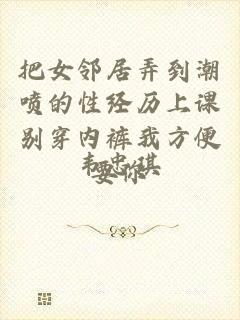 把女邻居弄到潮
喷的性经历上课
别穿内裤我方便
要你
琪